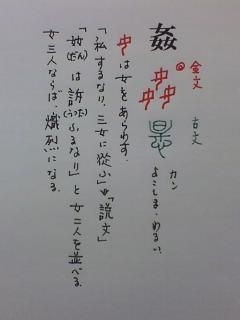 姦
金文
古文
カン
よこしま・わるい。
は女をあらわす。
「私するなり。三女に從ふ」『説文』
「奻(だん)は訴(うった)ふるなり」と女二人を並べる。
女三人ならば、熾烈になる。